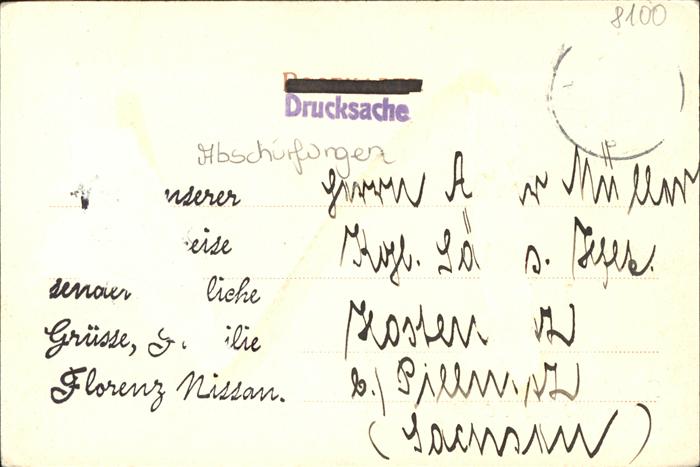 8100
Drucksache
Abschürfungen
unserer
eise
senden liche
Grüsse, ilie
Florenz Nissan.
Herrn A r Müller
Kgl. Sä s.
Hosterwitz
b./ Pillnitz
(Sachsen)